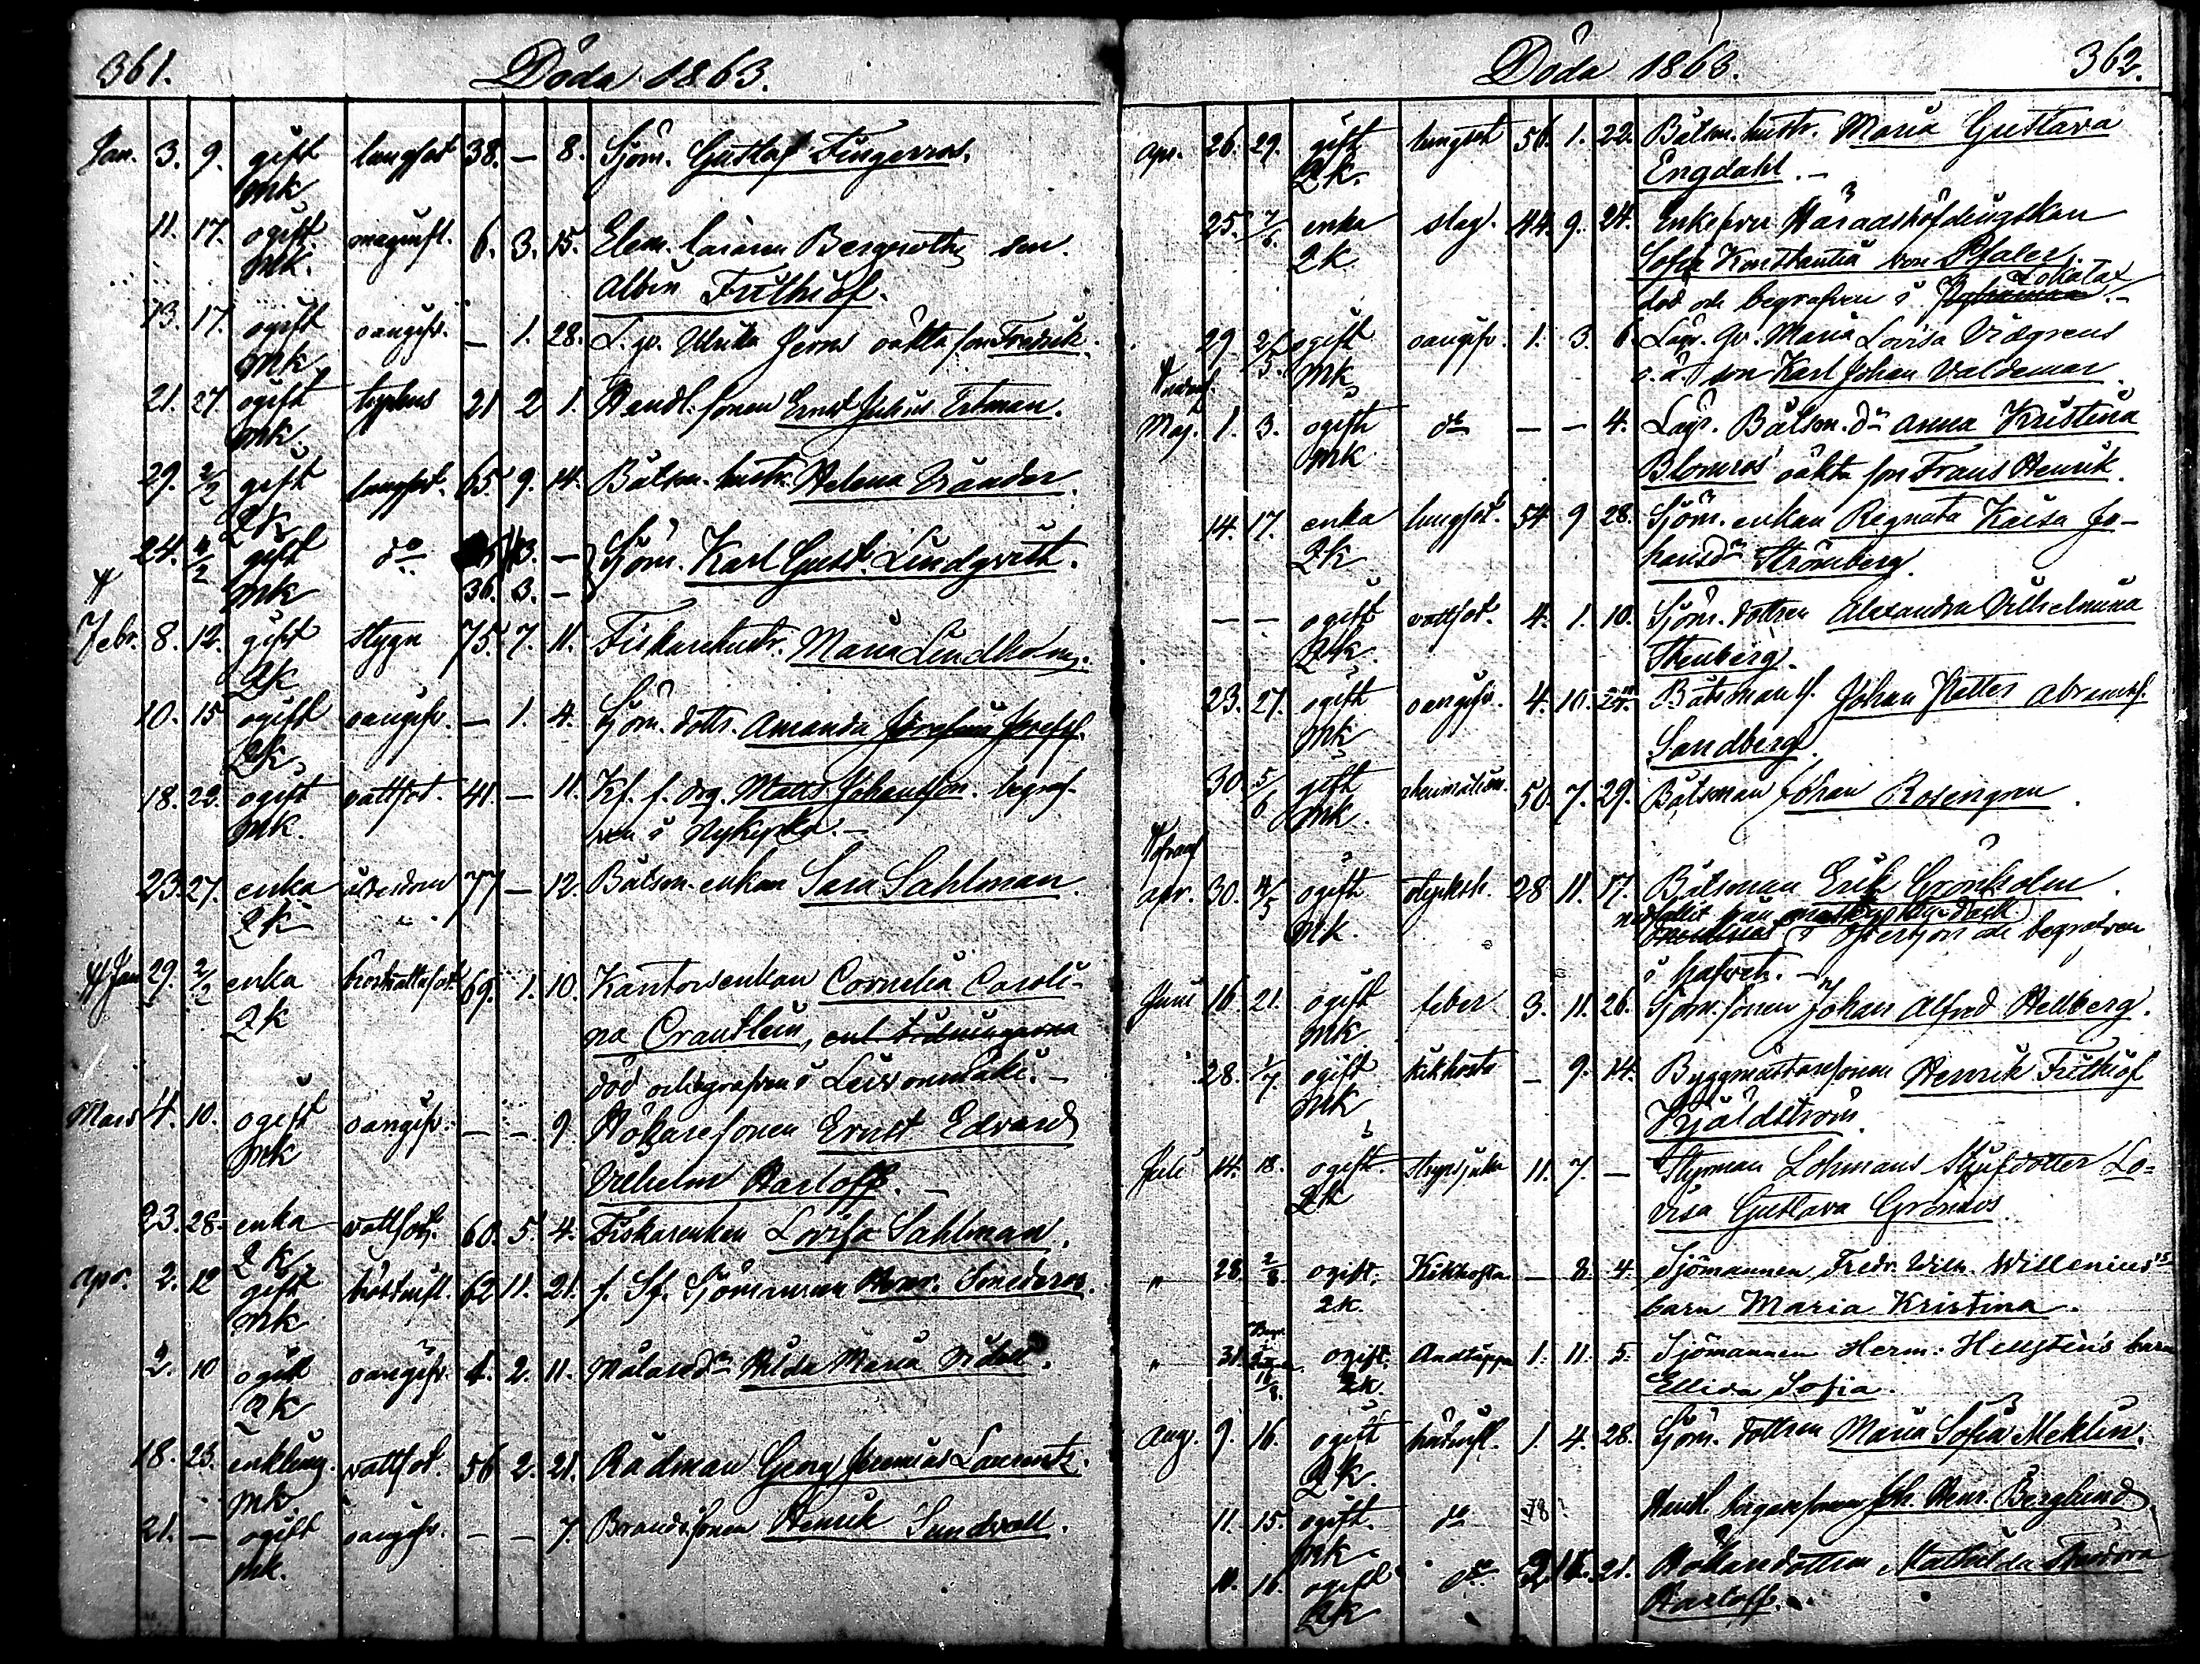 361. Döda 1863.
Jan. 3. 9. gift lungsot 38. — 8. Sjöm. Gustaf Fingerroos.
mk
11. 17. ogift 6. 3. 15. Elem. läraren Bergroths son
mk. Albin Frithiof.
13. 17. ogift oangifv. — 1. 28. L. qv. Ulrika Ferns oäkta son Fredrik.
mk
21. 27 ogift typhus 21 2 1. Handl. sonen Ernst Julius Ertman.
mk.
29. 2/2 gift lungsot. 65. 9. 14. Båtsm. hustr. Helena
Qk
24. 4/2 gift do Sjöm. Karl Gust. Lindqvist.
mk 36. 3. —
Febr. 8. 12. gift Stygn 75. 7. 11. Fiskarehustr. Maria Lindholm.
Qk
10. 15 ogift oangifv. — 1. 4. Sjöm. dottr. Amanda
Qk
18. 22. ogift vattsot. 41. — 11. Kf. f. drg. Mats Johansson. begraf-
mk. ven i Nykyrka. —
23. 27. enka ålderdom 77 — 12. Båtsm. enkan Sara Sahlman.
Qk
Jan 29. 2/2 enka bröstvattusot 69. 1. 10. Kantorsenkan Cornelia Caroli-
Qk na Crantlein, enl. tidningarna
död och begrafven i Leivonmäki. —
Mars 4. 10. ogift oangifv. — — 9 Hökaresonen Ernst Edvard
mk Vilhelm Hartoff. —
23. 28. enka vattsot. 60. 5. 4. Fiskarenkan Lovisa Sahlman.
Qk
Apr. 2. 12 gift bröstinfl. 62 11. 21. f. Sf. Sjömannen Henr. Smedsros.
mk
2. 10 ogift oangifv. 1. 2. 11. Målared:r Hilda Maria
Qk
18. 23. enkling. vattsot. 56 2. 21. Rådman Georg Jeremias Laurentz.
mk.
21. — ogift oangifv. — — 7. Henrik Sundvall.
mk.
Döda 1863. 362.
Apr. 26. 29. gift lungsot 56. 1. 22. Båtsm. hustr. Maria Gustava
Qk. Engdahl. —
25. enka slag. 44. 9. 24. Enkefru Häradshöfdingskan
Qk Sofia Konstantia von Pfaler,
Lokalax
död och begrafven i
29 2/5. ogift oangifv. 1. 3. 6. Lösa qv. Maria Lovisa Vidgrens
mk o.ä. son Karl Johan Valdemar
Maj. 1. 3. ogift do — — 4. Båtsm. d:r Anna Kristina
mk Blomros' oäkta son Frans Henrik.
14. 17. enka lungsot. 54. 9 28. Sjöm. enkan Regnata Kaisa Jo-
Qk hansd:r Strömberg.
— — ogift vattsot. 4. 1. 10. Sjöm. dottren Alexandra Vilhelmina
Qk Stenberg.
23. 27. ogift oangifv. 4. 10. Båtsmans s. Johan Petter Abramsf.
mk Sandberg.
30. 5/6 gift rheumatism. 50. 7. 29. Båtsman Johan Rosengren.
mk.
Apr. 30. 4/5 ogift olycksh. 28 11. 17. Båtsman Erik Grönholm.
mk. nedfallit från i Östersjön och begrafven
i hafvet. —
Juni 16. 21. ogift feber 3. 11. 26. Sjöm. sonen Johan Alfred Hellberg.
mk
28. 1/7 ogift kikhosta — 9. 14. Byggmästaresonen Henrik Frithiof
mk Kjäldström.
Juli 14. 18. ogift. 11. 7. — Styrman Lohmans styfdotter Lo-
Qk visa Gustava Grönroos.
" 28. 2/8 ogift. Kikhosta — 8. 4. Sjömannen Fredr. Wilh. Willenius's
2k. barn Maria Kristina.
" 31. ogift. Andtäppa 1. 11. 5. Sjömannen Herm. Hellstèn's barn
2k. Ellida Sofia.
Aug. 9. 16. ogift 1. 4. 28. Sjöm. dottren Maria Sofia Meklin.
Qk
11. 15. ogift. do Joh. Henr. Berglund
mk
11. 16. ogift do 21. Hökaredottren Mathilda Theodora
Qk Hartoff.